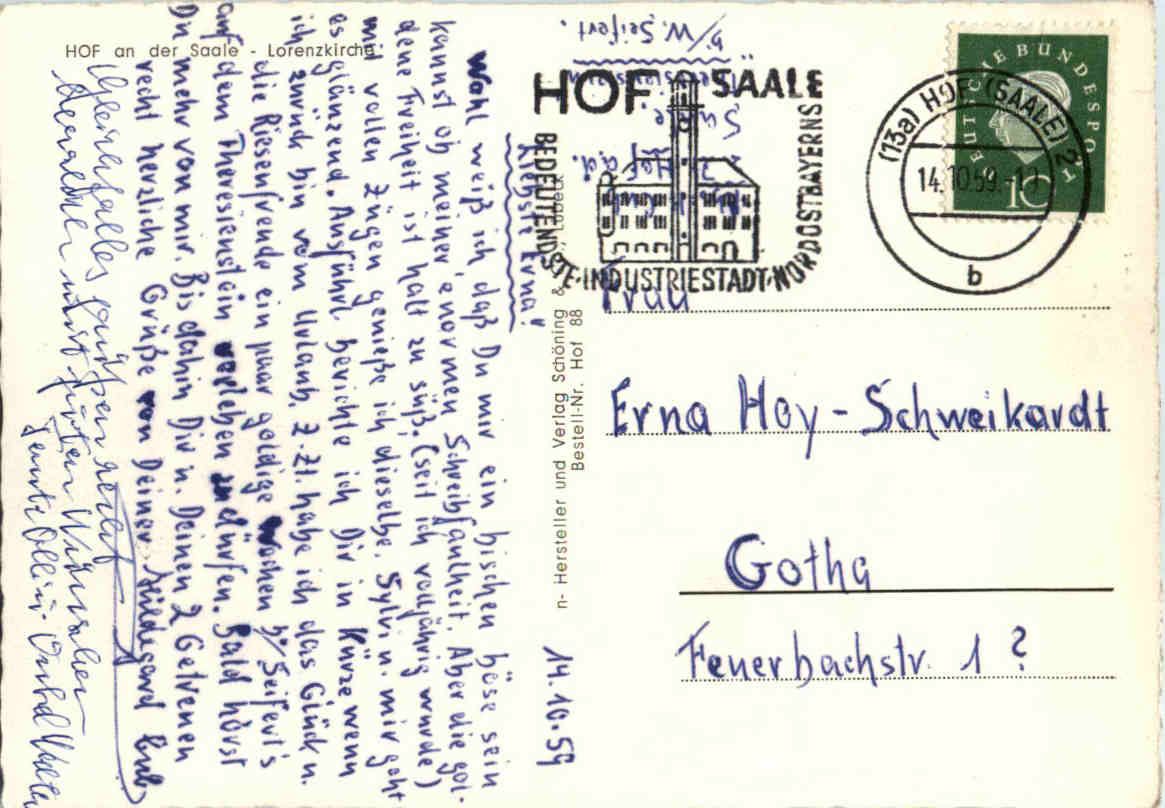 HOF an der Saale - Lorenzkirche
14.10.59
Liebste Erna!
Wohl weiß ich, daß Du mir ein bischen böse sein
kannst ob meiner enormen Schreibfaulheit. Aber die gol-
dene Freiheit ist halt zu süß, (seit ich volljährig wurde)
und vollen Zügen genieße ich dieselbe. Sylvi u. mir geht
es glänzend. Ausführl. berichte ich Dir in Kürze wenn
ich zurück bin vom Urlaub. Z.Zt. habe ich das Glück u.
die Riesenfreude ein paar goldige Wochen b/ Seifert's
auf dem Theresienstein verleben zu dürfen. Bald hörst
Du mehr von mir. Bis dahin Dir u. Deinen 2 Getreuen
recht herzliche Grüße von Deiner Hildegard
Gleichfalls
mit
Tante u. Onkel
b/ W. Seifert.
Theresienstein
Saale
Hof a.d.
n- Hersteller und Verlag Schöning & Lübeck
Bestell-Nr. Hof 88
HOF SAALE
BEDEUTENDSTE INDUSTRIESTADT NORDOSTBAYERNS
(13a) HOF (SAALE) 2
14.10.59
b
DEUTSCHE BUNDESPOST
10
Frau
Erna Hoy - Schweikardt
Gotha
Feuerbachstr. 1 ?